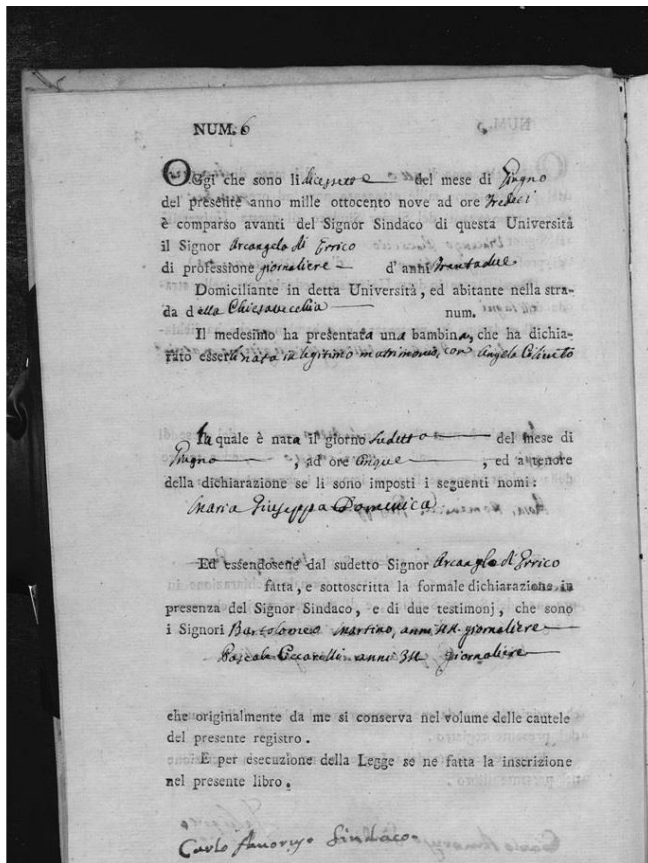 NUM. 6
Oggi che sono li diecisette del mese di Giugno
del presente anno mille ottocento nove ad ore tredeci
è comparso avanti del Signor Sindaco di questa Università
il Signor Arcangelo di Errico
di professione giornaliere d'anni trentadue
Domiciliante in detta Università, ed abitante nella stra-
da della Chiesavecchia num.
Il medesimo ha presentata una bambina, che ha dichia-
rato esserli nata in legitimo matrimonio, con Angela
la quale è nata il giorno sudetto del mese di
Giugno, ad ore cinque, ed a tenore
della dichiarazione se li sono imposti i seguenti nomi:
Maria Giuseppa Domenica
Ed essendosene dal sudetto Signor Arcangelo di Errico
fatta, e sottoscritta la formale dichiarazione in
presenza del Signor Sindaco, e di due testimonj, che sono
i Signori Bartolomeo Martino, anni giornaliere
Pascale Ciccarelli anni giornaliere
che originalmente da me si conserva nel volume delle cautele
del presente registro.
E per esecuzione della Legge se ne fatta la inscrizione
nel presente libro.
Carlo Sindaco